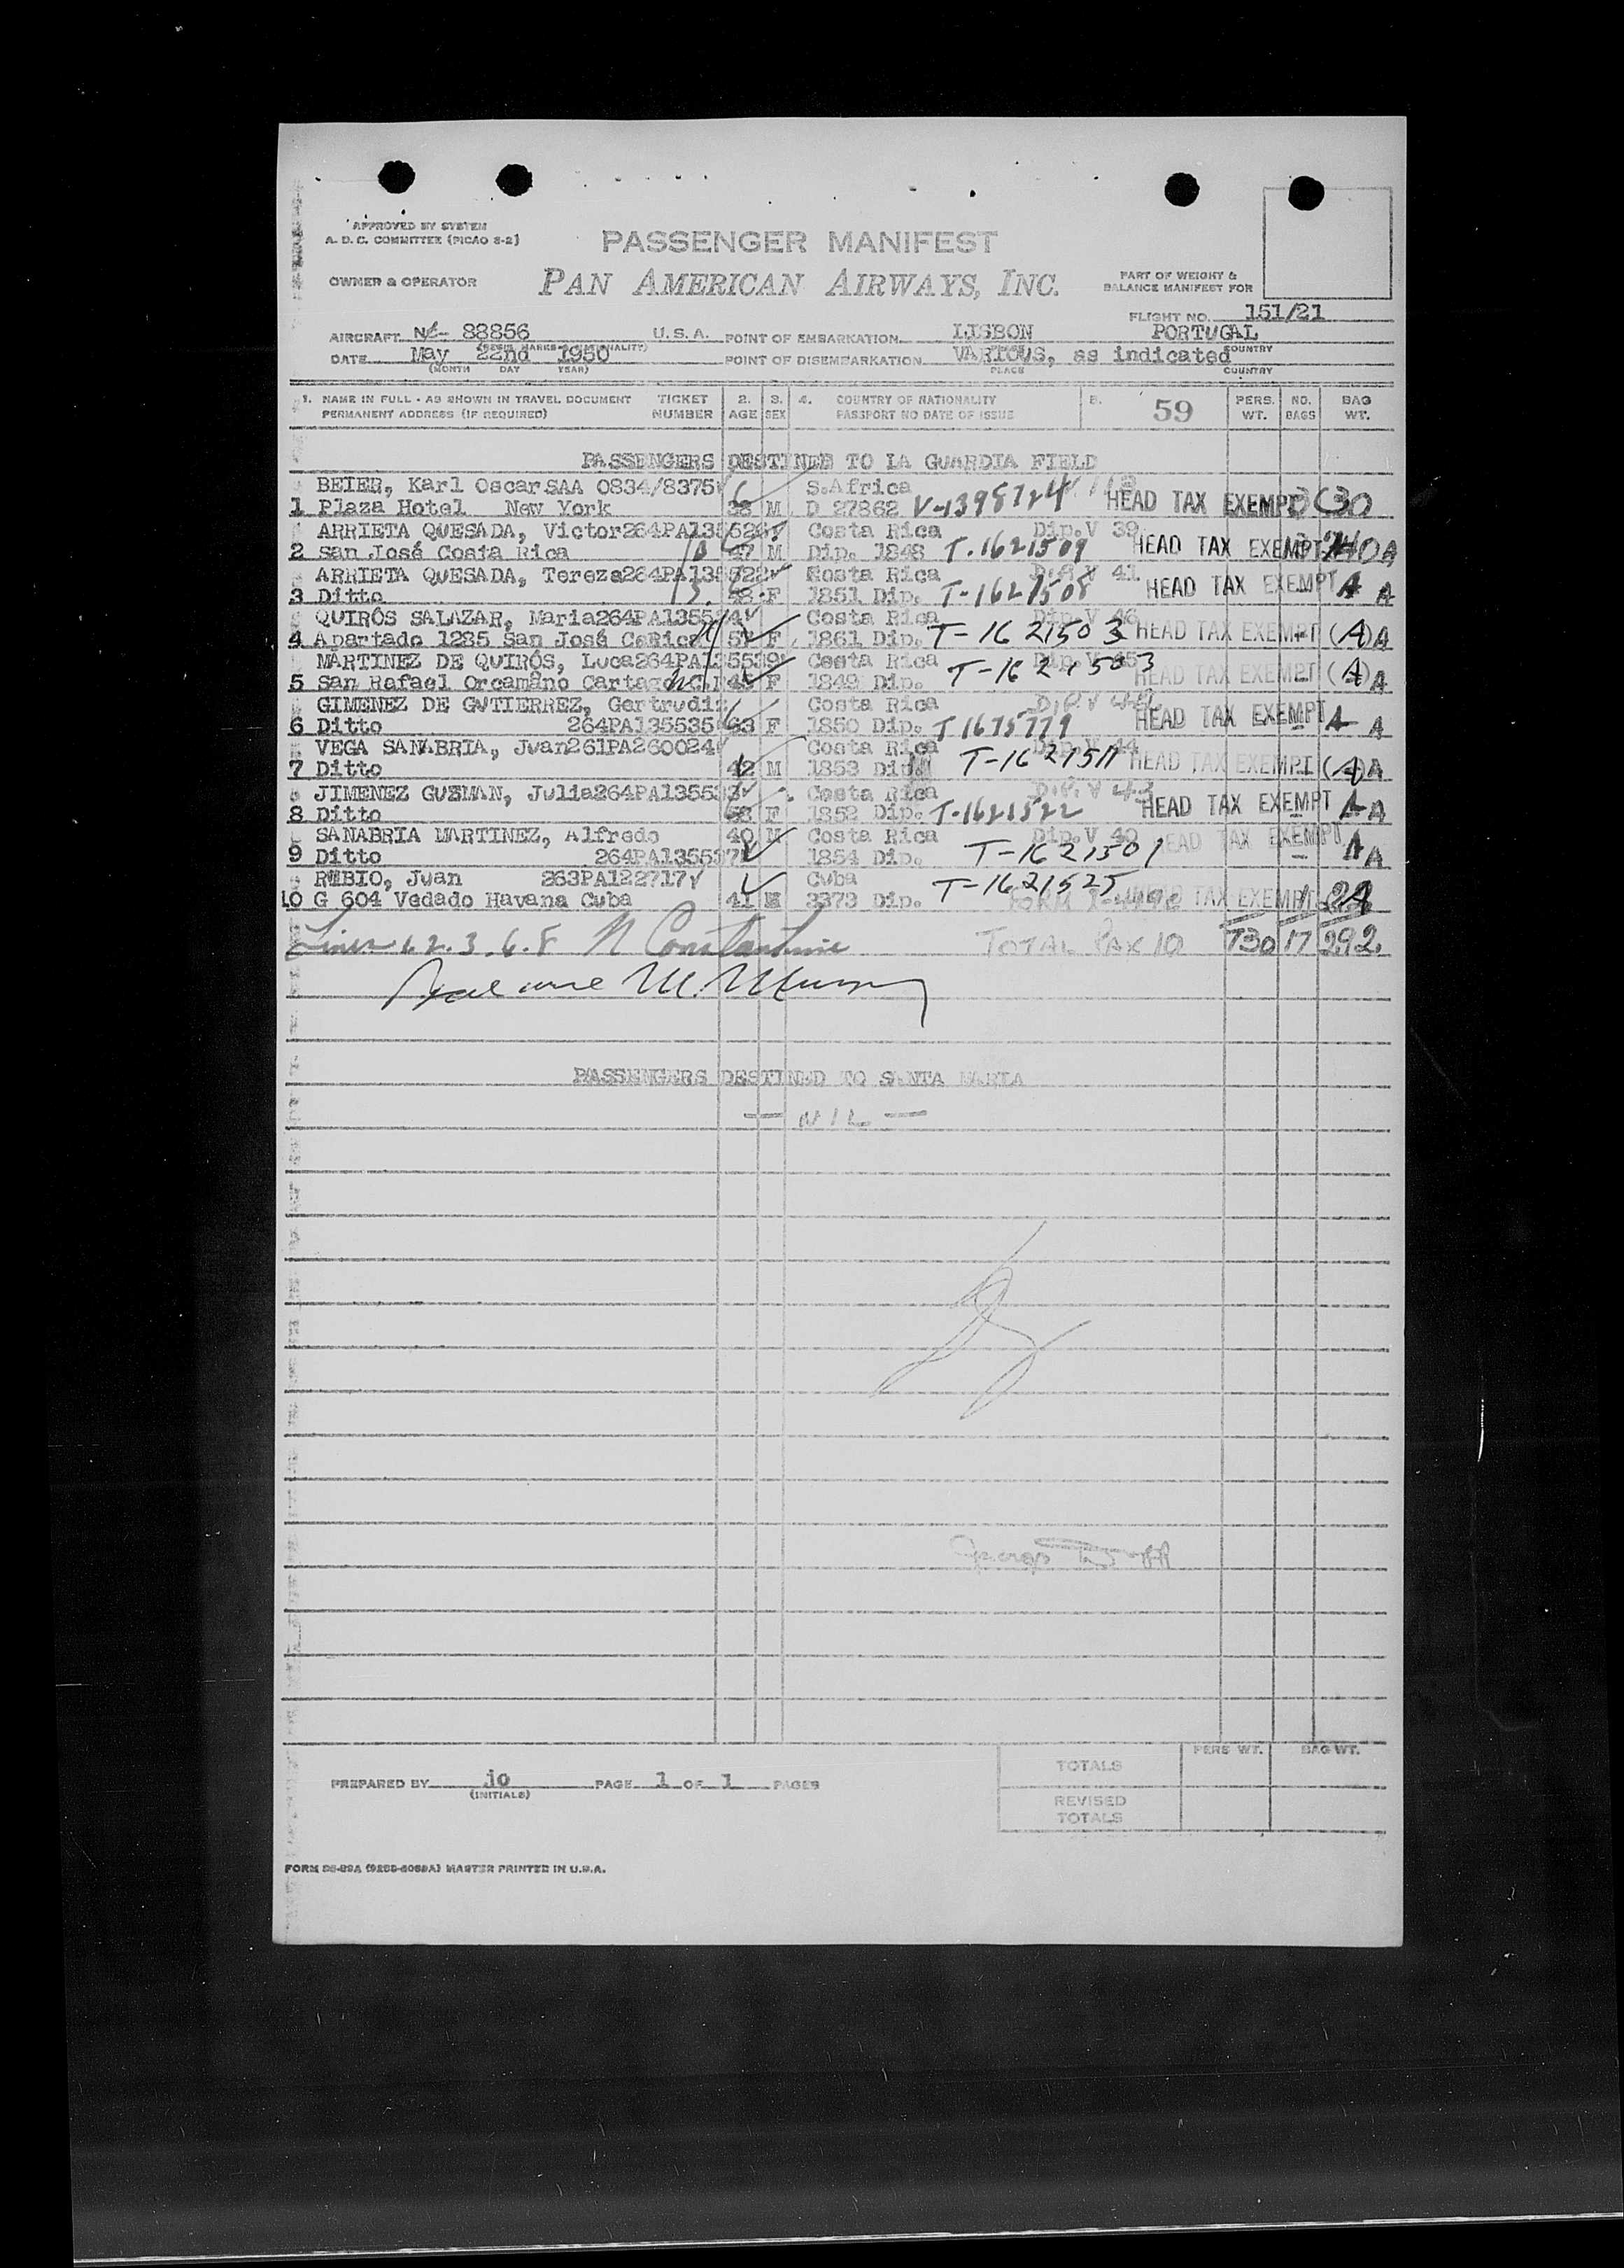 APPROVED BY SYSTEM
A. D. C. COMMITTEE (PICAO S-2)
PASSENGER MANIFEST
OWNER & OPERATOR
PAN AMERICAN AIRWAYS, INC.
PART OF WEIGHT &
BALANCE MANIFEST FOR
FLIGHT NO. 151/21
AIRCRAFT 88856 U.S.A. POINT OF EMBARKATION LISBON PORTUGAL
DATE May 22nd 1950 POINT OF DISEMBARKATION VARIOUS, as indicated COUNTRY
(MONTH DAY YEAR) PLACE COUNTRY
1. NAME IN FULL - AS SHOWN IN TRAVEL DOCUMENT TICKET 2. 3. 4. COUNTRY OF NATIONALITY 5. 59 PERS. NO. BAG
PERMANENT ADDRESS (IF REQUIRED) NUMBER AGE SEX PASSPORT NO DATE OF ISSUE WT. BAGS WT.
PASSENGERS DESTINED TO LA GUARDIA FIELD
BEIER, Karl Oscar SAA 0834/8375 S.Africa
1 Plaza Hotel New York 38 M D 27862 V-1398724 HEAD TAX EXEMPT 30
ARRIETA QUESADA, Victor 264PA135526 Costa Rica Dip.V 39
2 San José Costa Rica 47 M Dip. 1848 T.1621509 HEAD TAX EXEMPT A
ARRIETA QUESADA, Tereza 264PA135522 Costa Rica Dip V 41
3 Ditto F 1851 Dip. T-1621508 HEAD TAX EXEMPT A A
QUIRÓS SALAZAR, Maria 264PA1355 Costa Rica Dip.V 46
4 Apartado 1285 San José CoRica F 1861 Dip. T-1621503 HEAD TAX EXEMPT (A) A
MARTINEZ DE QUIRÓS, Luca 264PA135539 Costa Rica Dip.V 45
5 San Rafael Orcamano Cartago C.R F 1849 Dip. T-1621503 HEAD TAX EXEMPT (A) A
GIMENEZ DE GUTIERREZ, Gertrudiz Costa Rica
6 Ditto 264PA135535 63 F 1850 Dip. T.1675779 HEAD TAX EXEMPT A A
VEGA SANABRIA, Juan 261PA260024 Costa Rica Dip.V 44
7 Ditto 42 M 1853 Dip. T-1621511 HEAD TAX EXEMPT (A) A
JIMENEZ GUZMAN, Julia 264PA135533 Costa Rica D.P. V 43
8 Ditto F 1852 Dip. T-1621522 HEAD TAX EXEMPT A A
SANABRIA MARTINEZ, Alfredo 40 M Costa Rica Dip.V 40
9 Ditto 264PA135537 1854 Dip. T-1621501 HEAD TAX EXEMPT A A
RUBIO, Juan 263PA122717 Cuba
10 G 604 Vedado Havana Cuba 41 M 3373 Dip. T-1621525 HEAD TAX EXEMPT
Lines 1.2.3.6.8 N Constantine TOTAL PAX 10 1730 17 292
PASSENGERS DESTINED TO SANTA MARIA
— NIL —
PERS WT. BAG WT.
TOTALS
PREPARED BY jo PAGE 1 OF 1 PAGES
(INITIALS)
REVISED
TOTALS
MASTER PRINTED IN U.S.A.